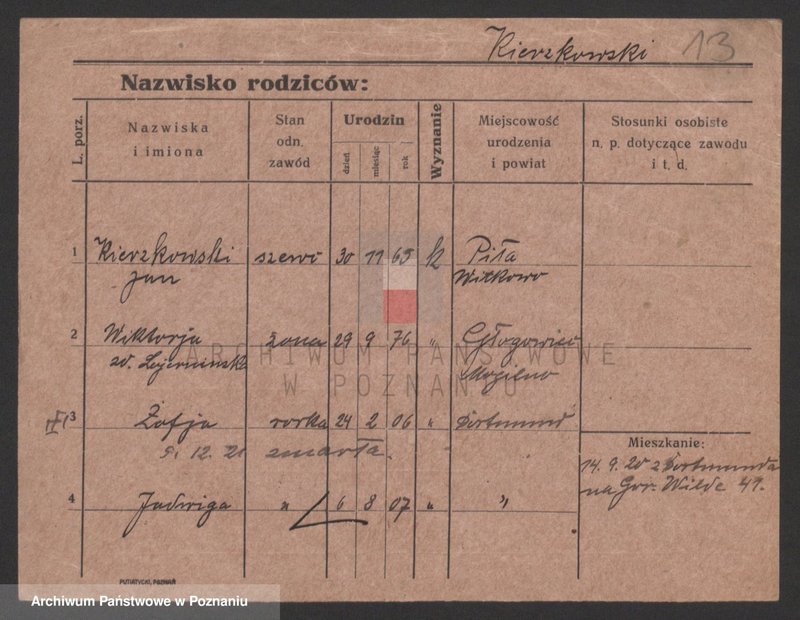 Kierzkowski 13
Nazwisko rodziców:
L. porz.
Nazwiska
i imiona
Stan
odn.
zawód
Urodzin
dzień
miesiąc
rok
Wyznanie
Miejscowość
urodzenia
i powiat
Stosunki osobiste
n. p. dotyczące zawodu
i t. d.
1 Kierzkowski szewc 30 11 65 k Piła
Jan Witkowo
2 Wiktorja żona 29 9 76 " Głogowiec
zd. Mogilno
ARCHIWUM PAŃSTWOWE
W POZNANIU
3 Zofja córka 24 2 06 " Dortmund
5. 12. 21 zmarła.
Mieszkanie:
14. 9. 20 z Dortmunda
na Gór. Wilde 41.
4 Jadwiga " 6 8 07 " "
PUTIATYCKI, POZNAŃ
Archiwum Państwowe w Poznaniu